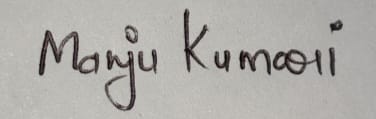 Manju Kumari